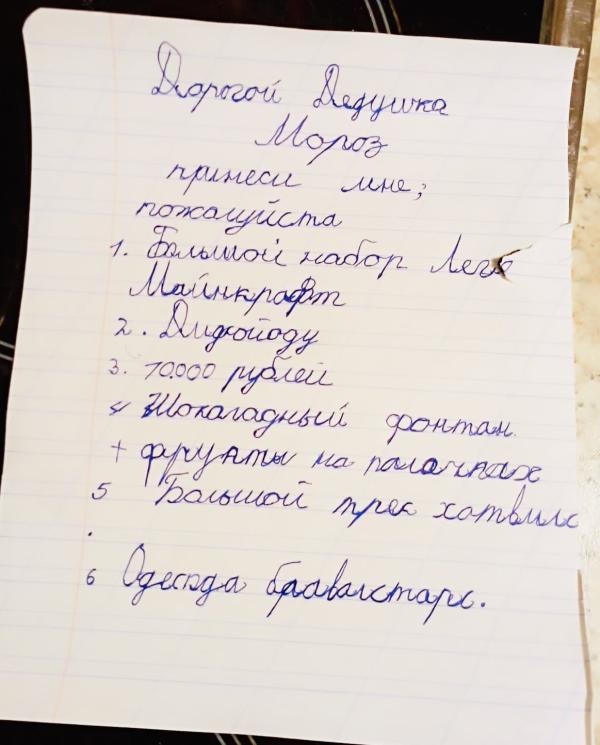 Дорогой Дедушка
Мороз
принеси мне;
пожащуйста
1. Большой набор Лего
Майнкрафт
2.
3. 10.000 рублей
4 Шокагадный фонтан.
+ фрукты на палачках
5 Большой трек хотвилс
.
6 Одежда бравалстарс.